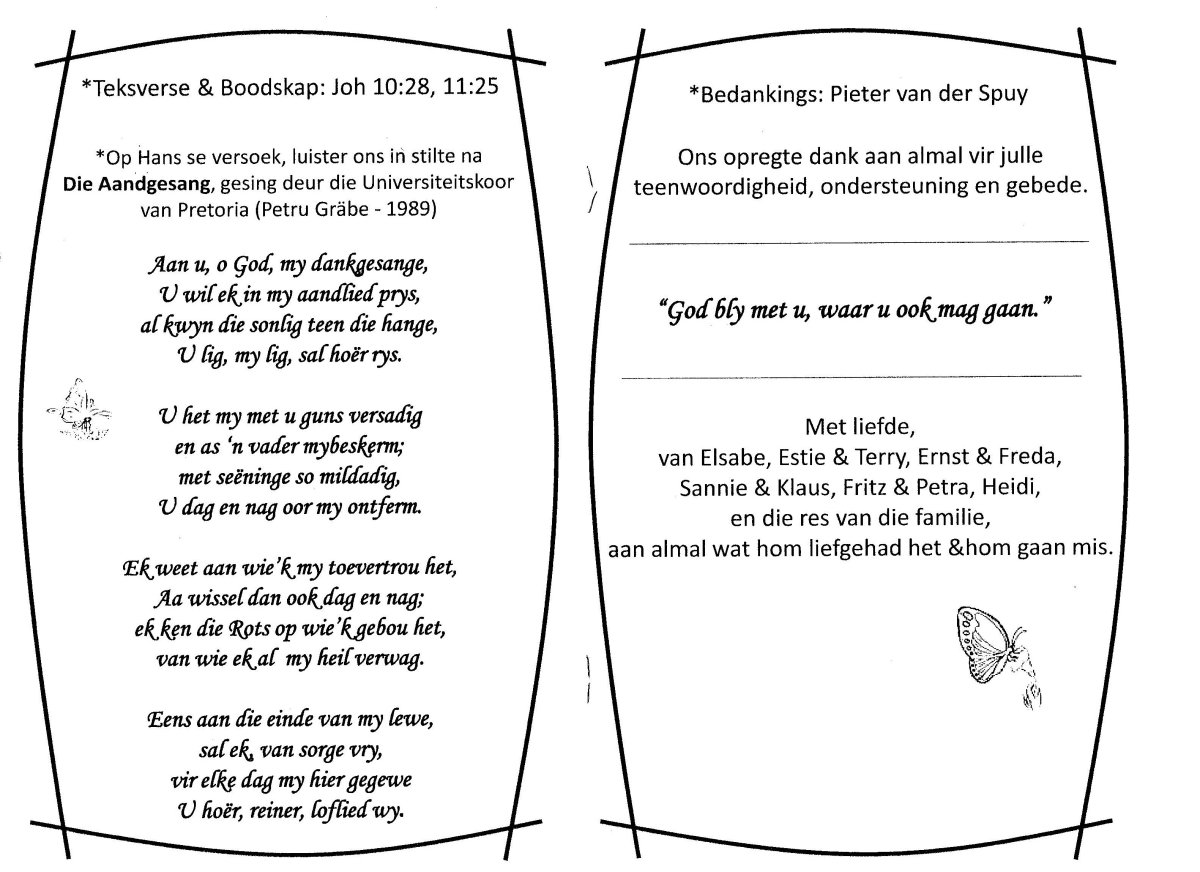 *Teksverse & Boodskap: Joh 10:28, 11:25
*Op Hans se versoek, luister ons in stilte na
Die Aandgesang, gesing deur die Universiteitskoor
van Pretoria (Petru Gräbe - 1989)
Aan u, o God, my dankgesange,
U wil ek in my aandlied prys,
al kwyn die sonlig teen die hange,
U lig, my lig, sal hoër rys.
U het my met u guns versadig
en as ‘n vader mybeskerm;
met seëninge so mildadig,
U dag en nag oor my ontferm.
Ek weet aan wie’k my toevertrou het,
Aa wissel dan ook dag en nag;
ek ken die Rots op wie’k gebou het,
van wie ek al my heil verwag.
Eens aan die einde van my lewe,
sal ek, van sorge vry,
vir elke dag my hier gegewe
U hoër, reiner, loflied wy.
*Bedankings: Pieter van der Spuy
Ons opregte dank aan almal vir julle
teenwoordigheid, ondersteuning en gebede.
“God bly met u, waar u ook mag gaan.”
Met liefde,
van Elsabe, Estie & Terry, Ernst & Freda,
Sannie & Klaus, Fritz & Petra, Heidi,
en die res van die familie,
aan almal wat hom liefgehad het &hom gaan mis.